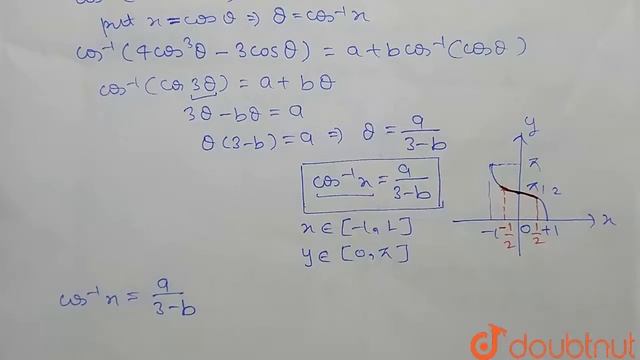 put x = cos θ ⇒ θ = cos⁻¹x
cos⁻¹(4cos³θ − 3cosθ) = a + b cos⁻¹(cosθ)
cos⁻¹(cos 3θ) = a + bθ
3θ − bθ = a
θ(3−b) = a ⇒ θ = a/(3−b)
cos⁻¹x = a/(3−b)
x ∈ [−1, 1]
y ∈ [0, π]
y
π
π/2
−1 −1/2 0 1/2 +1 x
cos⁻¹x = a/(3−b)
doubtnut